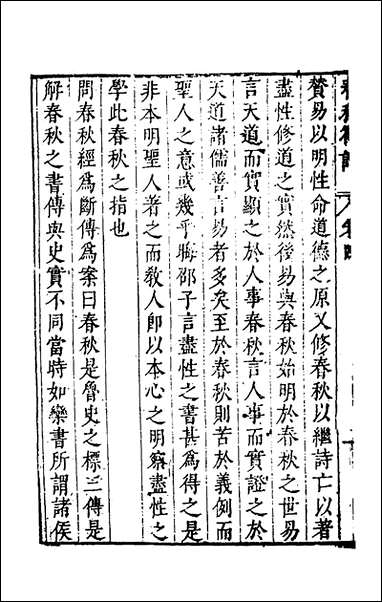 贊易以明性命道德之原又修春秋以繼詩亡以著
盡性修道之實然後易與春秋始明於春秋之世易
言天道而實顯之於人事春秋言人事而實證之於
天道諸儒善言易者多矣至於春秋則苦於義例而
聖人之意或幾乎晦邵子言盡性之書甚為得之是
非本明聖人著之而敎人即以本心之明察盡性之
學此春秋之指也
問春秋經爲斷傳爲案曰春秋是魯史之標三傳是
解春秋之書傳與史實不同當時如欒書所謂諸侯